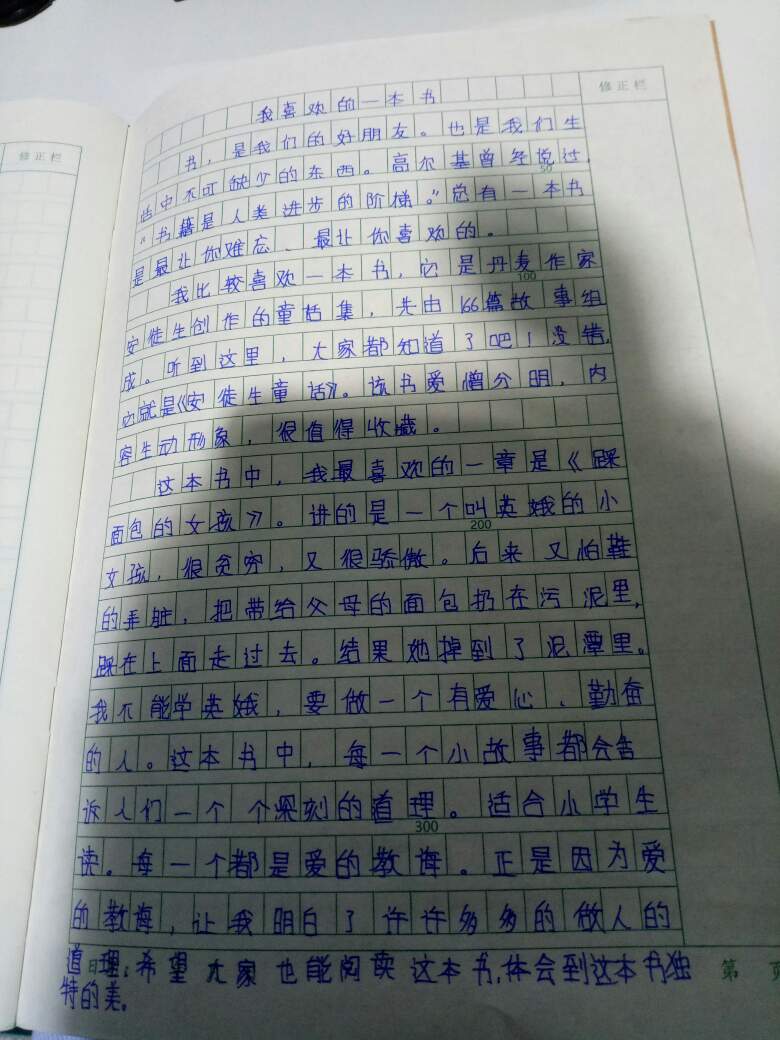 修正栏
修正栏
我喜欢的一本书
书，是我们的好朋友。也是我们生
活中不可缺少的东西。高尔基曾经说过，
50
“书籍是人类进步的阶梯。”总有一本书
是最让你难忘、最让你喜欢的。
我比较喜欢一本书，它是丹麦作家
100
安徒生创作的童话集，共由166篇故事组
成。听到这里，大家都知道了吧！没错，
它就是《安徒生童话》。该书爱憎分明，内
容生动形象，很值得收藏。
这本书中，我最喜欢的一章是《踩
面包的女孩》。讲的是一个叫英娥的小
200
女孩，很贪穷，又很骄傲。后来又怕鞋
的弄脏，把带给父母的面包扔在污泥里，
踩在上面走过去。结果她掉到了泥潭里。
我不能学英娥，要做一个有爱心、勤奋
的人。这本书中，每一个小故事都会告
诉人们一个个深刻的道理。适合小学生
300
读。每一个都是爱的教诲。正是因为爱
的教诲，让我明白了许许多多的做人的
道理；希望大家也能阅读这本书，体会到这本书独
特的美。
第 页